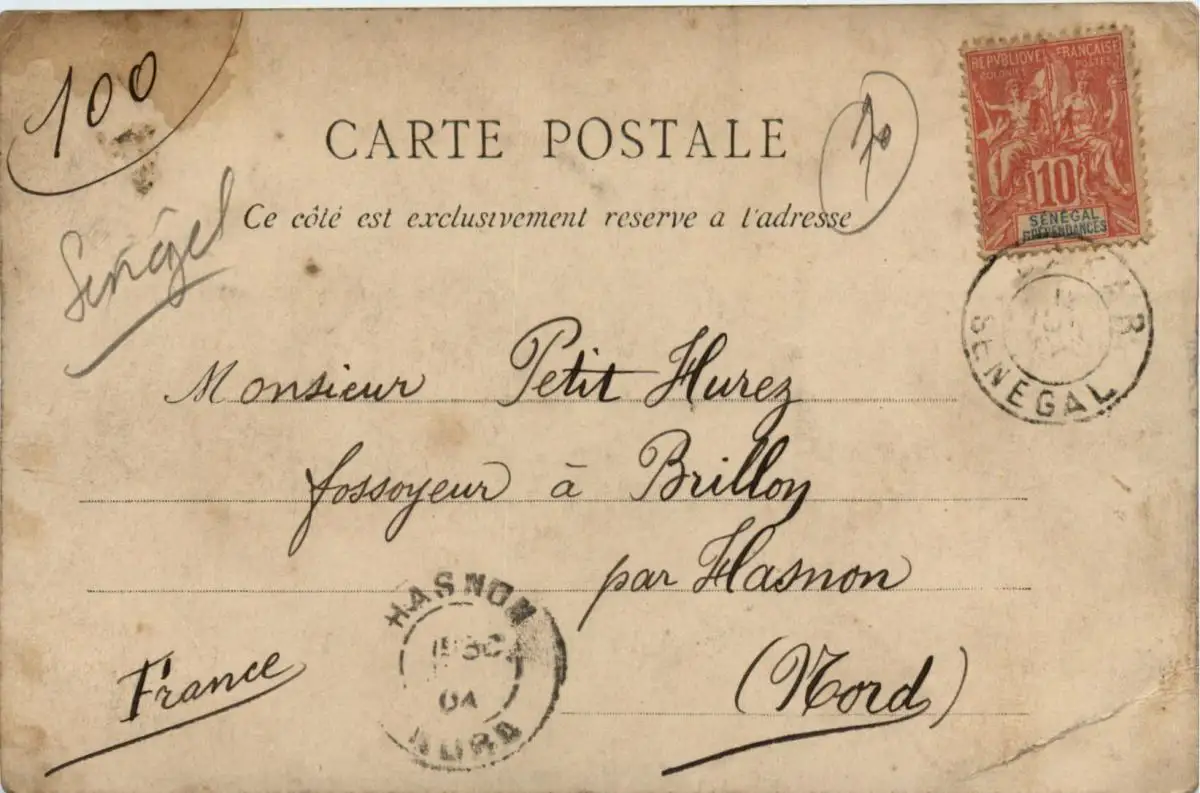 100
CARTE POSTALE
70
Ce côté est exclusivement reserve a l'adresse
REPVBLIQVE FRANÇAISE
COLONIES POSTES
10
SÉNÉGAL
ET DÉPENDANCES
Sénégal
DAKAR
SENEGAL
Monsieur Petit Hurez
fossoyeur à Brillon
par Hasnon
(Nord)
France
HASNON
DEC
04
NORD